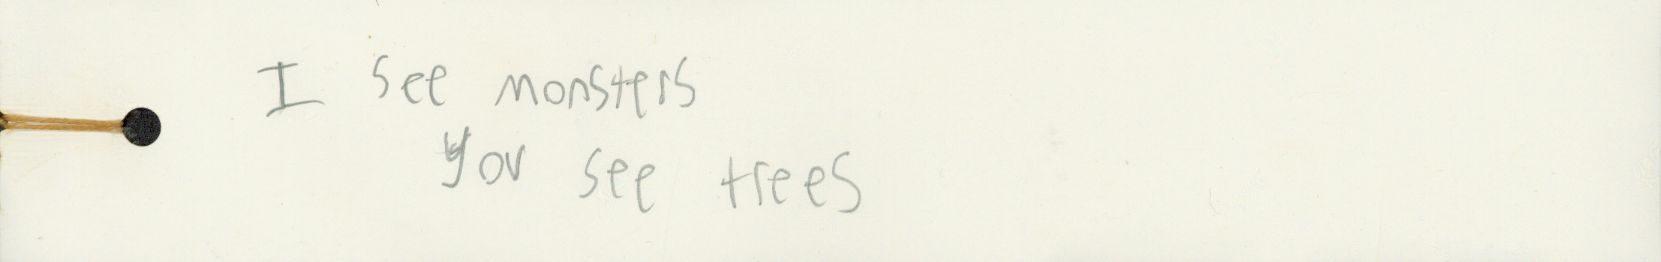 I see monsters
you see trees